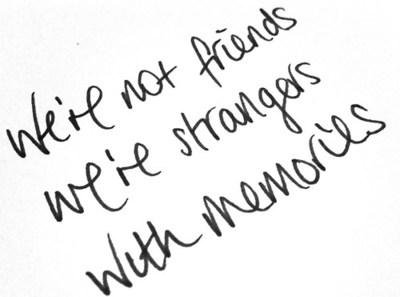 We're not friends
we're strangers
with memories